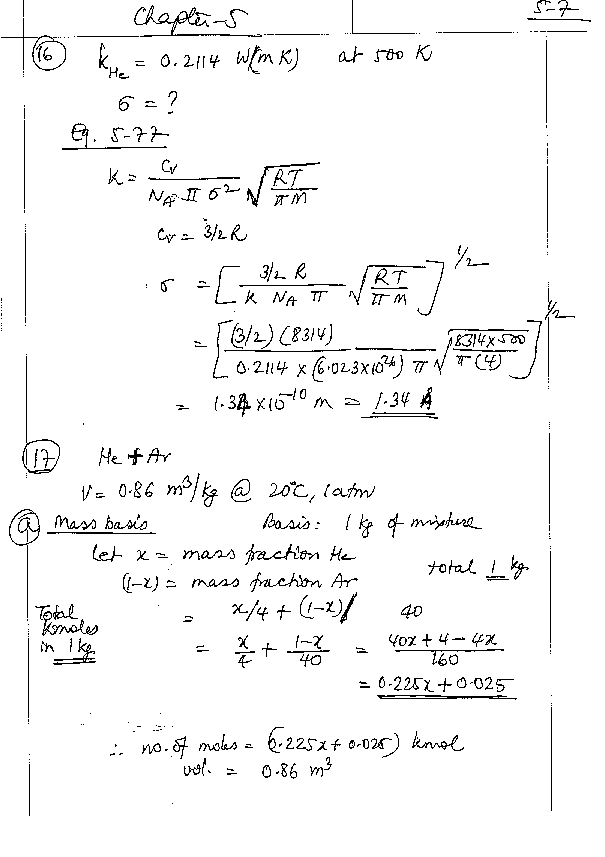 Chapter-5
5-7
(16) k_He = 0.2114 W/(m K) at 500 K
σ = ?
Eq. 5-77
k = Cv / (N_A π σ²) √(RT / πM)
Cv = 3/2 R
σ = [ (3/2 R) / (k N_A π) √(RT / πM) ]^1/2
= [ (3/2) (8314) / (0.2114 × (6.023×10^26) π) √(8314×500 / π(4)) ]^1/2
= 1.34 ×10^-10 m = 1.34 Å
(17) He + Ar
V = 0.86 m³/kg @ 20°C, 1atm
(a) Mass basis Basis: 1 kg of mixture
Let x = mass fraction He
(1-x) = mass fraction Ar total 1 kg
Total kmoles in 1 kg = x/4 + (1-x)/ 40
= x/4 + (1-x)/40 = (40x + 4 - 4x)/160
= 0.225x + 0.025
∴ no. of moles = (0.225x + 0.025) kmol
vol. = 0.86 m³